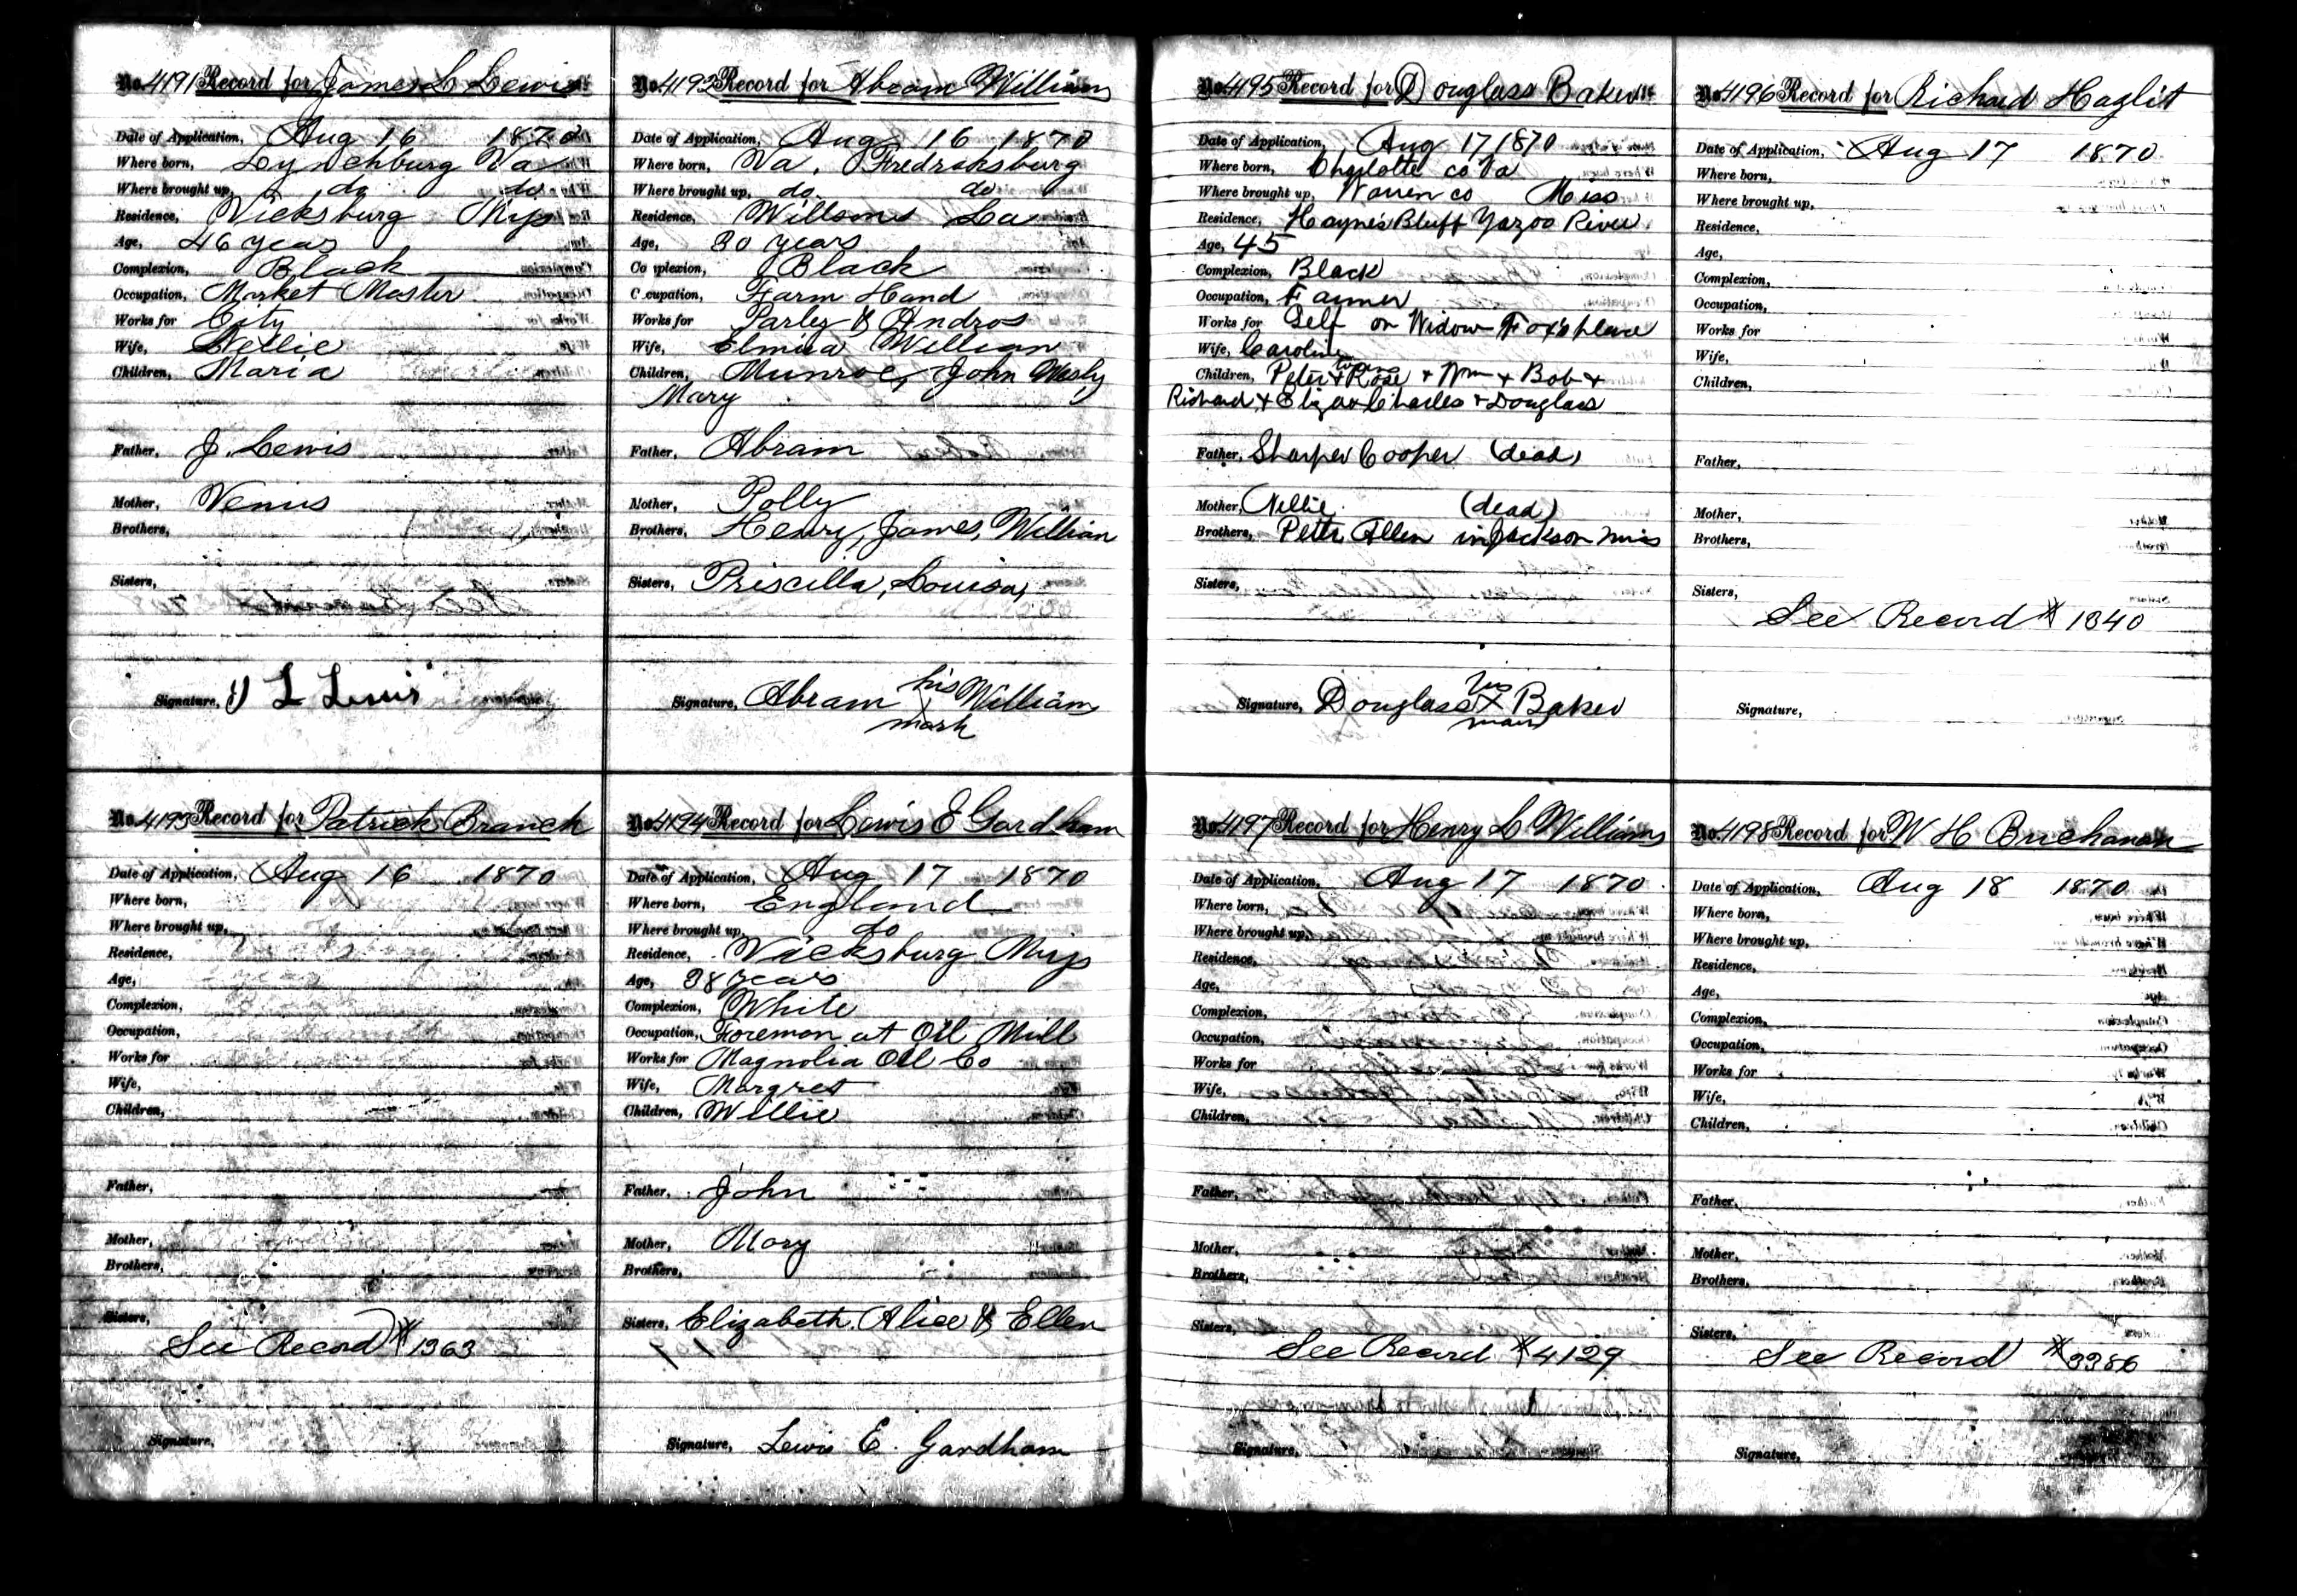 No. 4191 Record for James L Lewis
Date of Application, Aug 16 1870
Where born, Lynchburg Va
Where brought up, do do
Residence, Vicksburg Miss
Age, 46 years
Complexion, Black
Occupation, Market Master
Works for City
Wife, Nellie
Children, Maria
Father, J. Lewis
Mother, Venus
Brothers,
Sisters,
Signature, J L Lewis
No. 4192 Record for Abram William
Date of Application, Aug 16 1870
Where born, Va. Fredricksburg
Where brought up, do do
Residence, Willsons La
Age, 30 years
Complexion, Black
Occupation, Farm Hand
Works for Parley & Andros
Wife, Elmira William
Children, Munroe, John Wesly
Mary
Father, Abram
Mother, Polly
Brothers, Henry, James, William
Sisters, Priscilla, Louisa,
Signature, Abram his William
mark
No. 4193 Record for Patrick Branch
Date of Application, Aug 16 1870
Where born,
Where brought up,
Residence,
Age,
Complexion,
Occupation,
Works for
Wife,
Children,
Father,
Mother,
Brothers,
Sisters,
See Record # 1363
Signature,
No. 4194 Record for Lewis E Gardham
Date of Application, Aug 17 1870
Where born, England
Where brought up, do
Residence, Vicksburg Miss
Age, 38 years
Complexion, White
Occupation, Foreman at Oil Mill
Works for Magnolia Oil Co
Wife, Margret
Children, Willie
Father, John
Mother, Mary
Brothers,
Sisters, Elizabeth, Alice & Ellen
Signature, Lewis E. Gardham
No. 4195 Record for Douglass Baker
Date of Application, Aug 17 1870
Where born, Charlotte co Va
Where brought up, Warren co Miss
Residence, Hayne's Bluff Yazoo River
Age, 45
Complexion, Black
Occupation, Farmer
Works for Self on Widow Fox's place
Wife, Caroline
Children, Peter & Rose + Wm + Bob +
Richard + Eliza + Charles + Douglass
Father, Sharper Cooper (dead)
Mother, Nellie (dead)
Brothers, Peter Allen in Jackson Miss
Sisters,
Signature, Douglass his X Baker
mark
No. 4196 Record for Richard Hazlit
Date of Application, Aug 17 1870
Where born,
Where brought up,
Residence,
Age,
Complexion,
Occupation,
Works for
Wife,
Children,
Father,
Mother,
Brothers,
Sisters,
See Record # 1340
Signature,
No. 4197 Record for Henry L Williams
Date of Application, Aug 17 1870
Where born,
Where brought up,
Residence,
Age,
Complexion,
Occupation,
Works for
Wife,
Children,
Father,
Mother,
Brothers,
Sisters,
See Record # 4129
Signature,
No. 4198 Record for W H Buchanan
Date of Application, Aug 18 1870
Where born,
Where brought up,
Residence,
Age,
Complexion,
Occupation,
Works for
Wife,
Children,
Father,
Mother,
Brothers,
Sisters,
See Record # 3386
Signature,